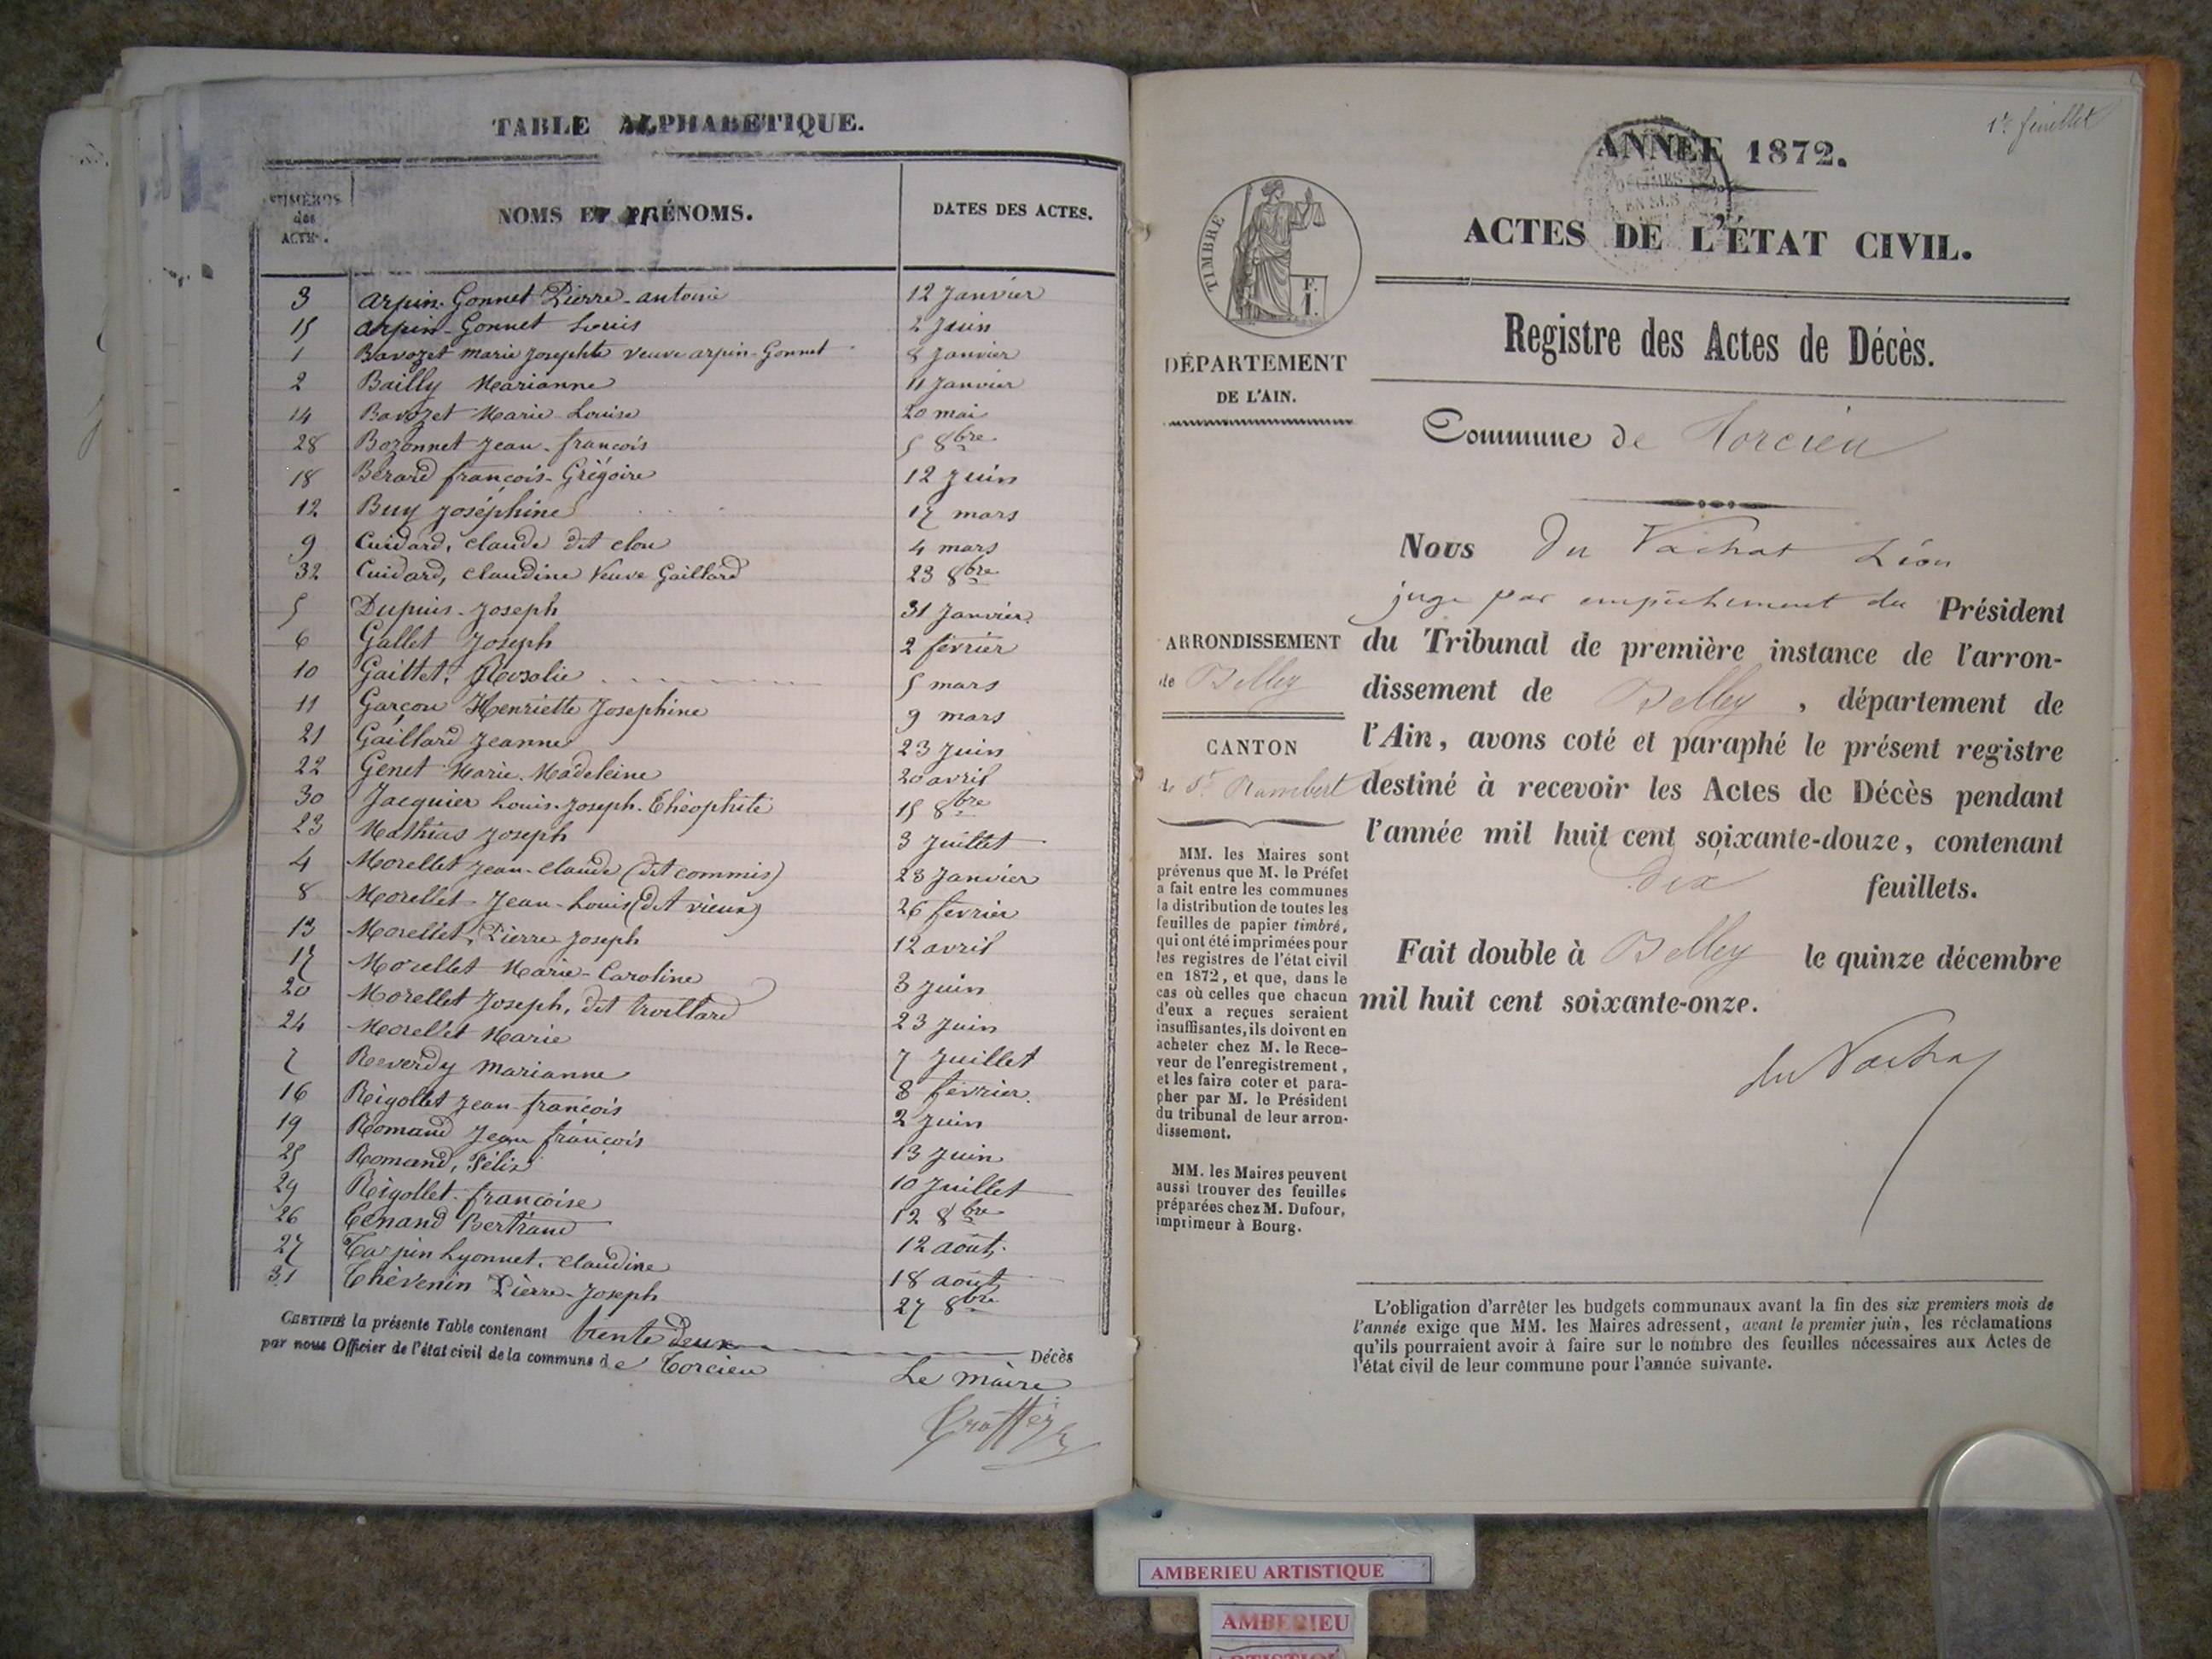 TABLE ALPHABETIQUE.
NUMÉROS des ACTES. NOMS ET PRÉNOMS. DATES DES ACTES.
3 Arpin-Gonnet Pierre-antoine 12 Janvier
15 Arpin-Gonnet Louis 2 Juin
1 Bavozet marie Josephte veuve arpin-Gonnet 8 Janvier
2 Bailly Marianne 11 Janvier
14 Bavozet Marie Louise 20 mai
28 Bozonnet Jean-françois 5 8bre
18 Bérard françois-Grégoire 12 Juin
12 Buy Joséphine 17 mars
9 Cuidard, claude dit clou 4 mars
32 Cuidard, claudine Veuve Gaillard 23 8bre
5 Dupuis-Joseph 31 Janvier
6 Gallet Joseph 2 février
10 Gaittet, Rosalie 5 mars
11 Garçon Henriette Josephine 9 mars
21 Gaillard Jeanne 23 Juin
22 Genet Marie-Madeleine 20 avril
30 Jacquier Louis-Joseph-Théophile 15 8bre
23 Mathias Joseph 3 Juillet
4 Morellet Jean-claude (dit commis) 23 Janvier
8 Morellet Jean-Louis (dit vieux) 26 fevrier
13 Morellet, Pierre Joseph 12 avril
17 Morellet Marie-Caroline 3 juin
20 Morellet Joseph, dit 23 Juin
24 Morellet Marie 7 Juillet
7 Reverdy Marianne 8 février.
16 Rigollet Jean-françois 2 Juin
19 Romand Jean françois 13 Juin
25 Romand, Félix 10 Juillet
29 Rigollet françoise 12 8bre
26 Cenand Bertrand 12 août.
27 Tarpin Lyonnet, claudine 18 août
31 Thévenin Pierre-Joseph 27 8bre
CERTIFIÉ la présente Table contenant trente deux Décès
par nous Officier de l'état civil de la commune de Torcieu
Le maire
1er feuillet
ANNÉE 1872.
ACTES DE L'ÉTAT CIVIL.
TIMBRE
F.
1.
Registre des Actes de Décès.
DÉPARTEMENT
DE L'AIN.
Commune de Torcieu
Nous Du Vachat Léon
juge par empêchement du Président
du Tribunal de première instance de l'arron-
dissement de Belley, département de
l'Ain, avons coté et paraphé le présent registre
destiné à recevoir les Actes de Décès pendant
l'année mil huit cent soixante-douze, contenant
dix feuillets.
Fait double à Belley le quinze décembre
mil huit cent soixante-onze.
du Vachat
ARRONDISSEMENT
de Belley
CANTON
de St Rambert
MM. les Maires sont
prévenus que M. le Préfet
a fait entre les communes
la distribution de toutes les
feuilles de papier timbré,
qui ont été imprimées pour
les registres de l'état civil
en 1872, et que, dans le
cas où celles que chacun
d'eux a reçues seraient
insuffisantes, ils doivent en
acheter chez M. le Rece-
veur de l'enregistrement,
et les faire coter et para-
pher par M. le Président
du tribunal de leur arron-
dissement.
MM. les Maires peuvent
aussi trouver des feuilles
préparées chez M. Dufour,
imprimeur à Bourg.
L'obligation d'arrêter les budgets communaux avant la fin des six premiers mois de
l'année exige que MM. les Maires adressent, avant le premier juin, les réclamations
qu'ils pourraient avoir à faire sur le nombre des feuilles nécessaires aux Actes de
l'état civil de leur commune pour l'année suivante.
AMBERIEU ARTISTIQUE
AMBERIEU
ARTISTIQUE